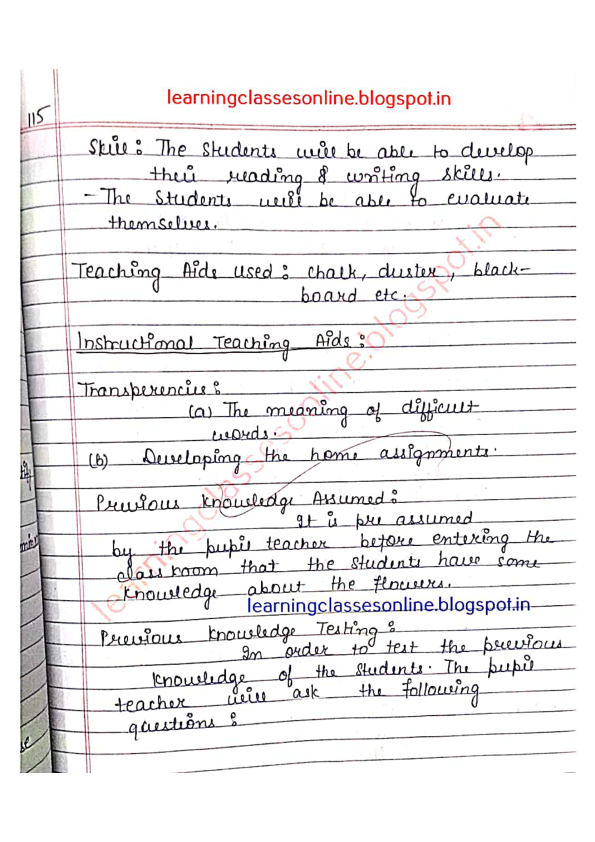 learningclassesonline.blogspot.in
115
Skill : The Students will be able to develop
their reading & writing skills.
- The Students will be able to evaluate
themselves.
Teaching Aids used : chalk, duster, black-
board etc.
Instructional Teaching Aids :
Transperencies :
(a) The meaning of difficult
words.
(b) Developing the home assignments.
Previous knowledge Assumed :
It is pre assumed
by the pupil teacher before entering the
class room that the students have some
knowledge about the flowers.
learningclassesonline.blogspot.in
Previous knowledge Testing :
In order to test the previous
knowledge of the students. The pupil
teacher will ask the following
questions :
learningclassesonline.blogspot.in